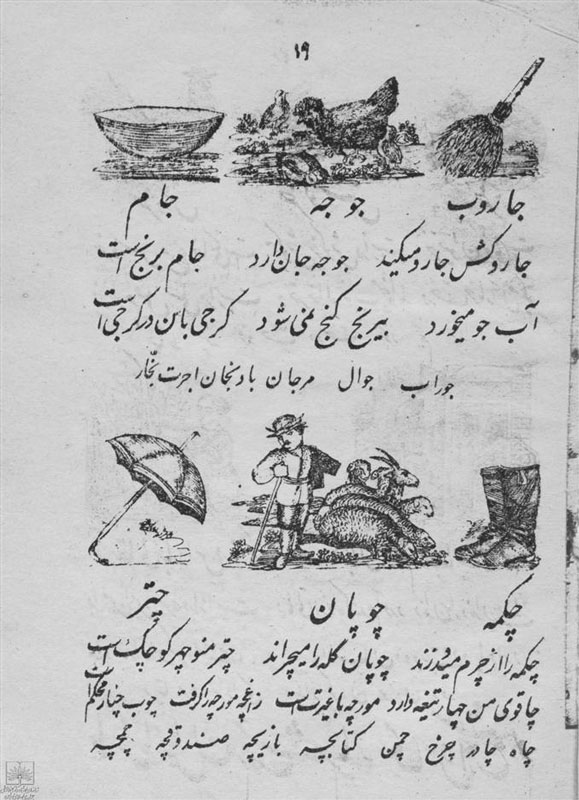 ۱۹
جاروب جوجه جام
جاروکش جارو میکند جوجه جان دارد جام برنج است
آب جو میخورد بیرنج گنج نمی شود کرجی باین در کرجی است
جوراب جوال مرجان بادنجان اجرت نجّار
چکمه چوپان چتر
چکمه را از چرم میدوزند چوپان گله را میچراند چتر منوچهر کوچک است
چاقوی من چهار تیغه دارد مورچه با غیرت است زاغچه مورچه را گرفت چوب چنار محکم است
چاه چادر چرخ چمن کتابچه بازیچه صندوقچه چمچه